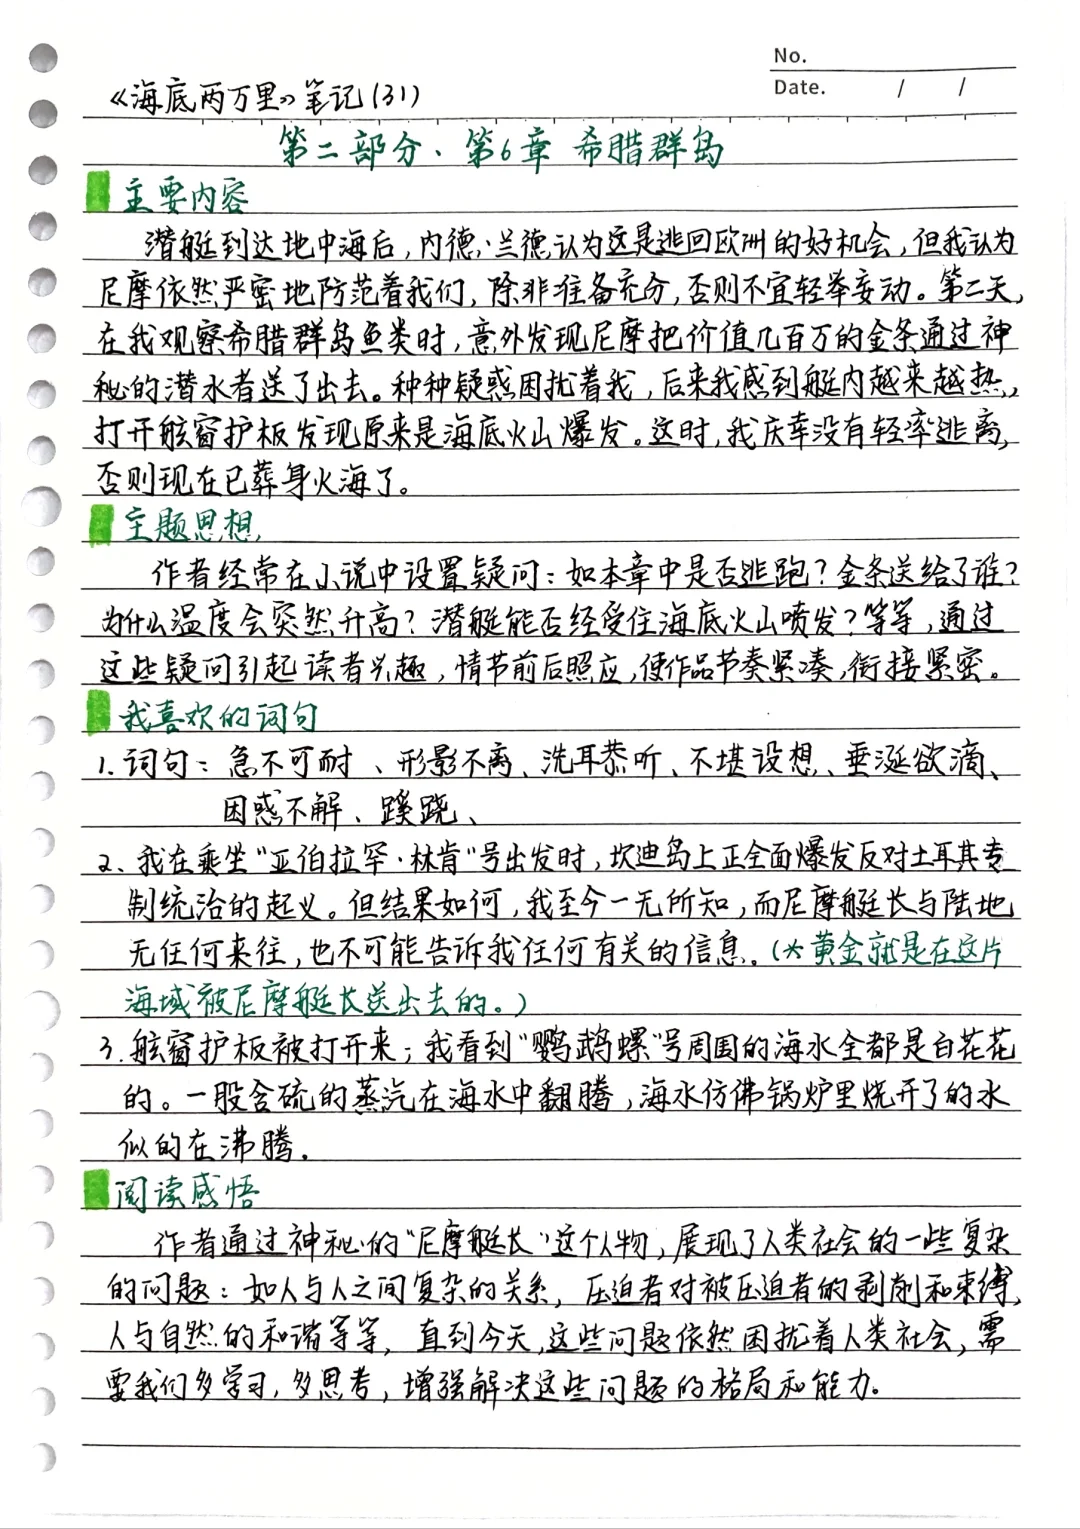 No.
Date. / /
《海底两万里》笔记(31)
第二部分、第6章 希腊群岛
主要内容
潜艇到达地中海后，内德·兰德认为这是逃回欧洲的好机会，但我认为
尼摩依然严密地防范着我们，除非准备充分，否则不宜轻举妄动。第二天，
在我观察希腊群岛鱼类时，意外发现尼摩把价值几百万的金条通过神
秘的潜水者送了出去。种种疑惑困扰着我，后来我感到艇内越来越热，
打开舷窗护板发现原来是海底火山爆发。这时，我庆幸没有轻率逃离，
否则现在已葬身火海了。
主题思想
作者经常在小说中设置疑问：如本章中是否逃跑？金条送给了谁？
为什么温度会突然升高？潜艇能否经受住海底火山喷发？等等，通过
这些疑问引起读者兴趣，情节前后照应，使作品节奏紧凑，衔接紧密。
我喜欢的词句
1. 词句：急不可耐、形影不离、洗耳恭听、不堪设想、垂涎欲滴、
困惑不解、蹊跷、
2、我在乘坐“亚伯拉罕·林肯”号出发时，坎迪岛上正全面爆发反对土耳其专
制统治的起义。但结果如何，我至今一无所知，而尼摩艇长与陆地
无任何来往，也不可能告诉我任何有关的信息。(*黄金就是在这片
海域被尼摩艇长送出去的。)
3. 舷窗护板被打开来；我看到“鹦鹉螺”号周围的海水全都是白花花
的。一股含硫的蒸汽在海水中翻腾，海水仿佛锅炉里烧开了的水
似的在沸腾.
阅读感悟
作者通过神秘的“尼摩艇长”这个人物，展现了人类社会的一些复杂
的问题：如人与人之间复杂的关系，压迫者对被压迫者的剥削和束缚，
人与自然的和谐等等，直到今天，这些问题依然困扰着人类社会，需
要我们多学习，多思考，增强解决这些问题的格局和能力。